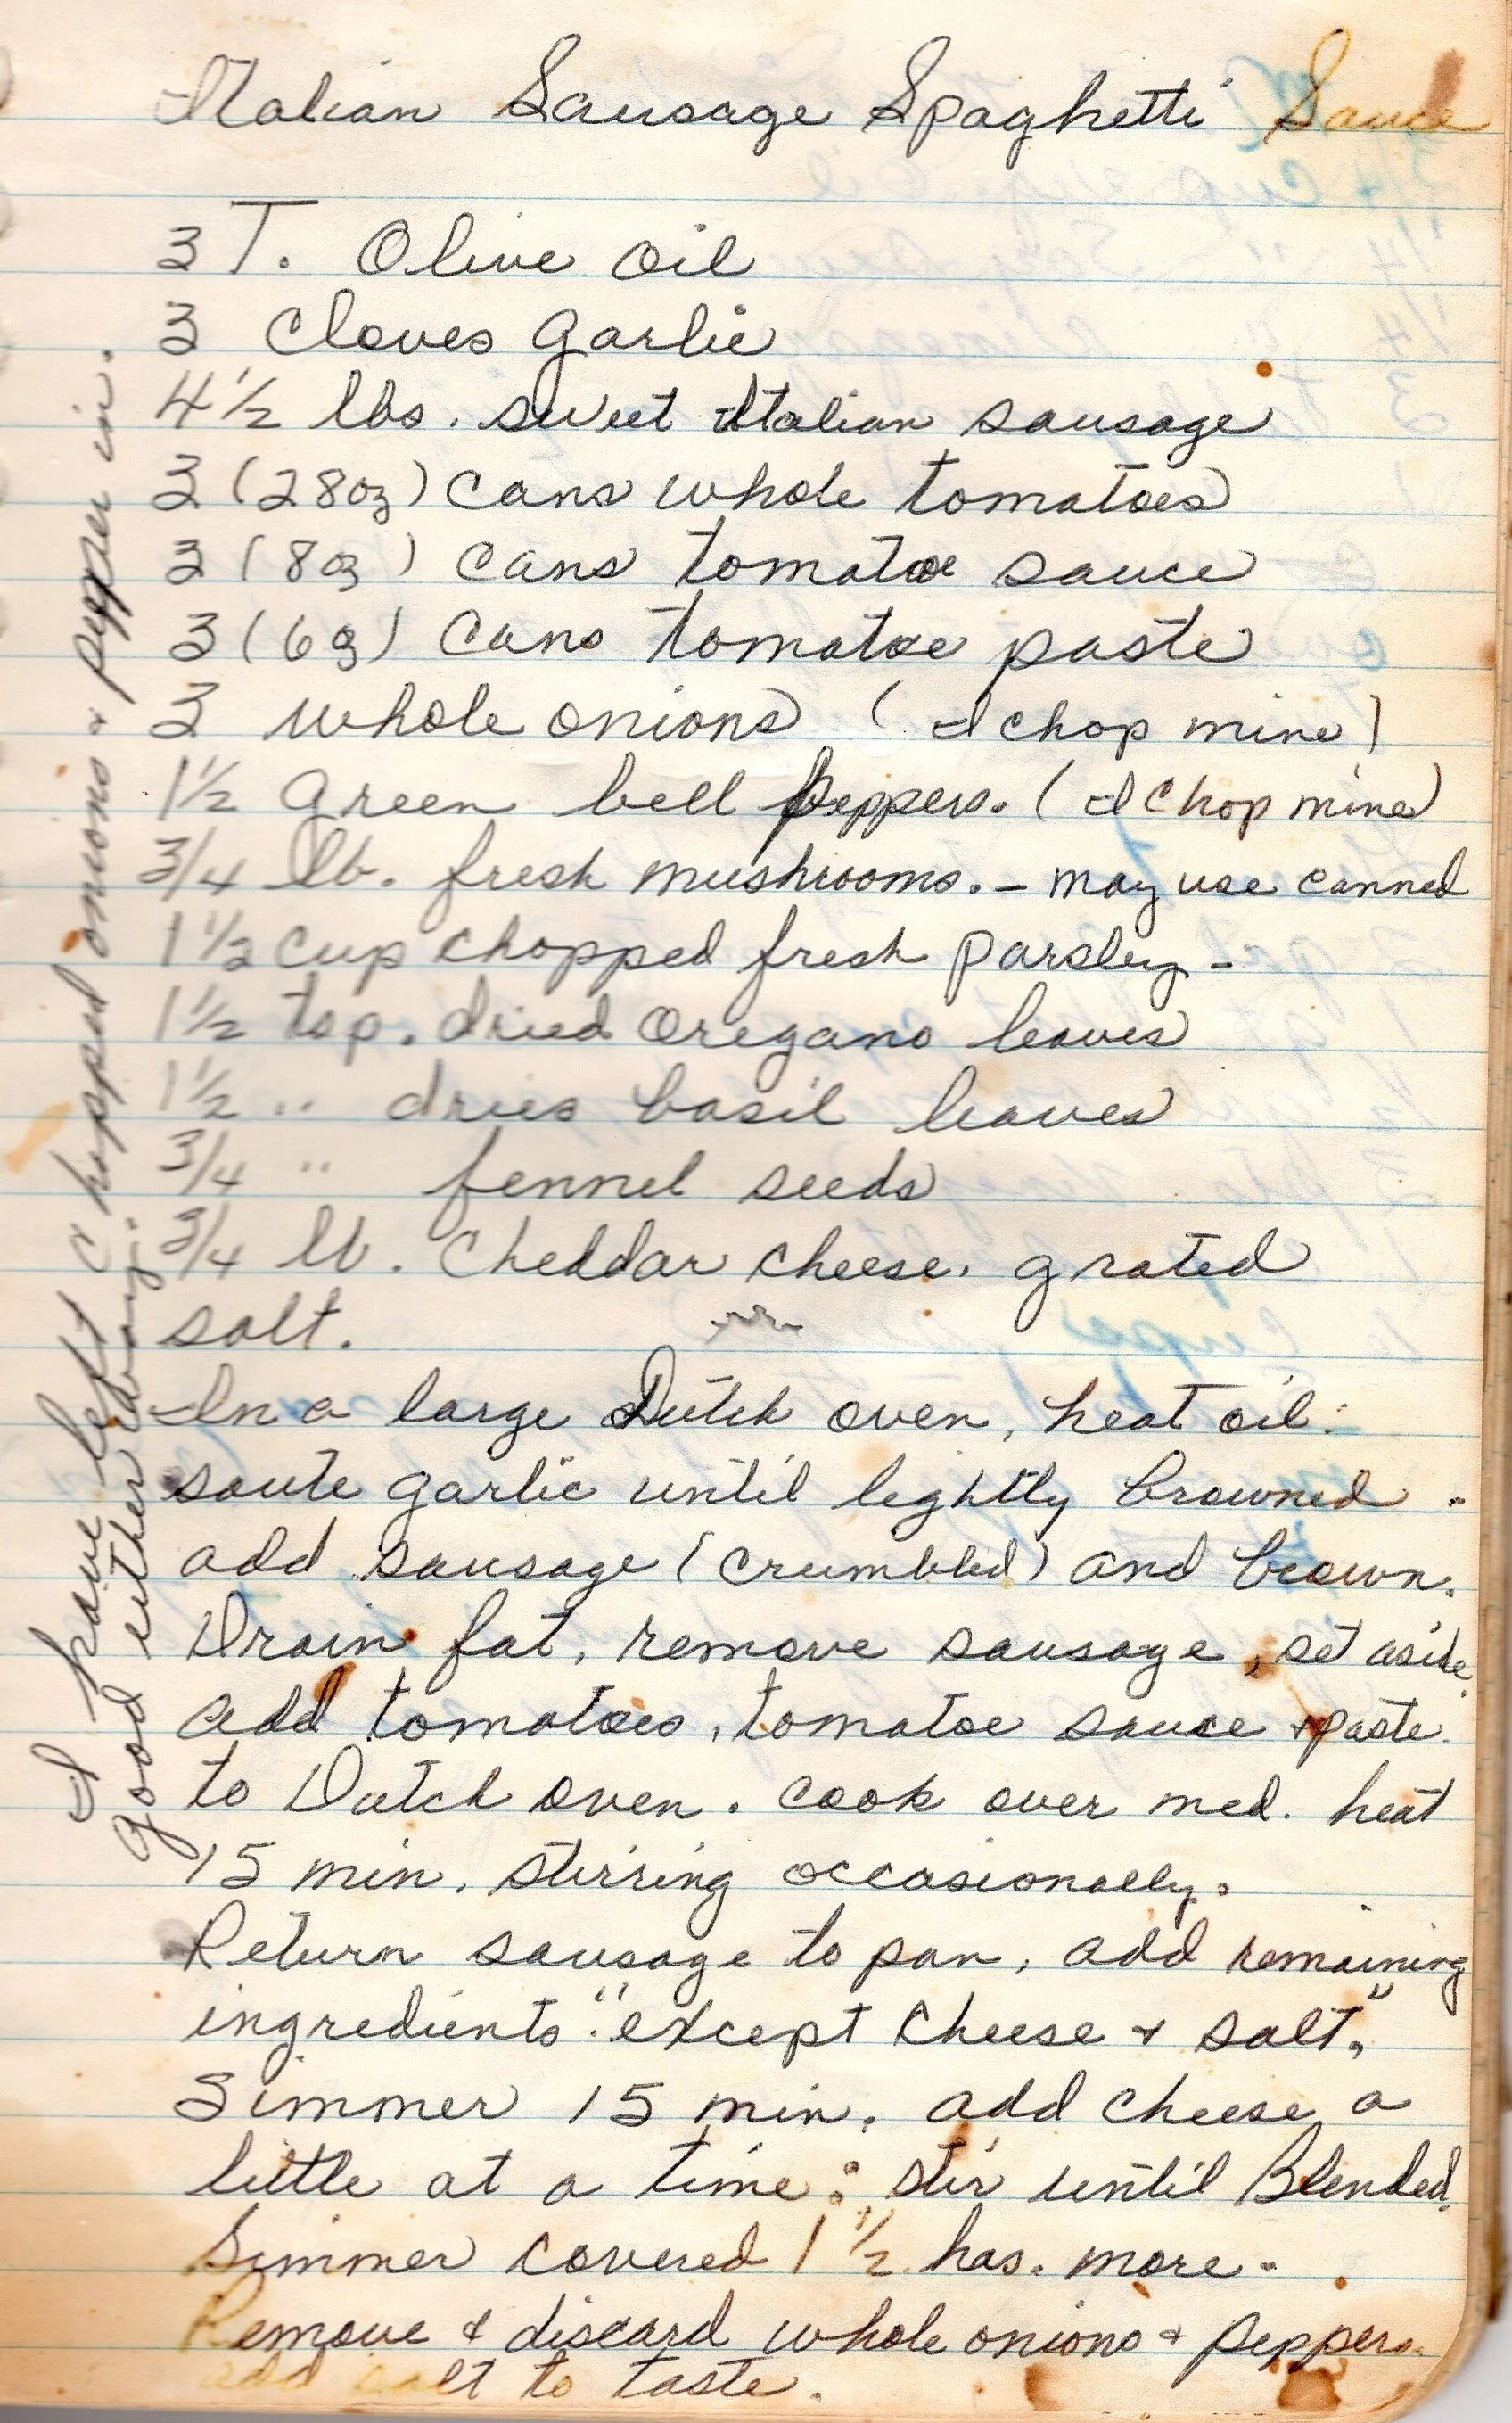 Italian Sausage Spaghetti Sauce
3 T. Olive oil
3 Cloves garlic
4 1/2 lbs. sweet Italian sausage
3 (28oz) cans whole tomatoes
3 (8oz) cans tomatoe sauce
3 (6oz) cans tomatoe paste
3 whole onions (I chop mine)
1 1/2 green bell peppers. (I chop mine)
3/4 lb. fresh mushrooms. - may use canned
1 1/2 cup chopped fresh parsley -
1 1/2 tsp. dried oregano leaves
1 1/2 " dries basil leaves
3/4 " fennel seeds
3/4 lb. Cheddar cheese. grated
salt.
In a large Dutch oven, heat oil.
saute garlic until lightly browned.
add sausage (crumbled) and brown.
Drain fat, remove sausage, set aside.
add tomatoes, tomatoe sauce & paste.
to Dutch oven. cook over med. heat
15 min. stirring occasionally.
Return sausage to pan, add remaining
ingredients "except cheese & salt."
Simmer 15 min. add cheese a
little at a time: stir until Blended.
Simmer covered 1 1/2 hrs. more.
Remove & discard whole onions & peppers.
add salt to taste.
I have left chopped onions & pepper in.
good either way.